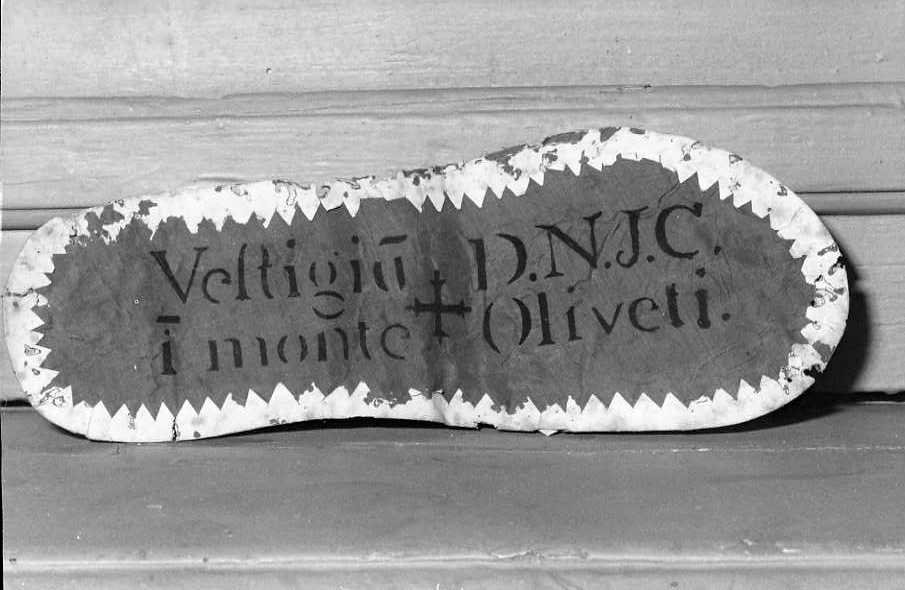 Veſtigiū D.N.J.C.
ī monte + Oliveti.